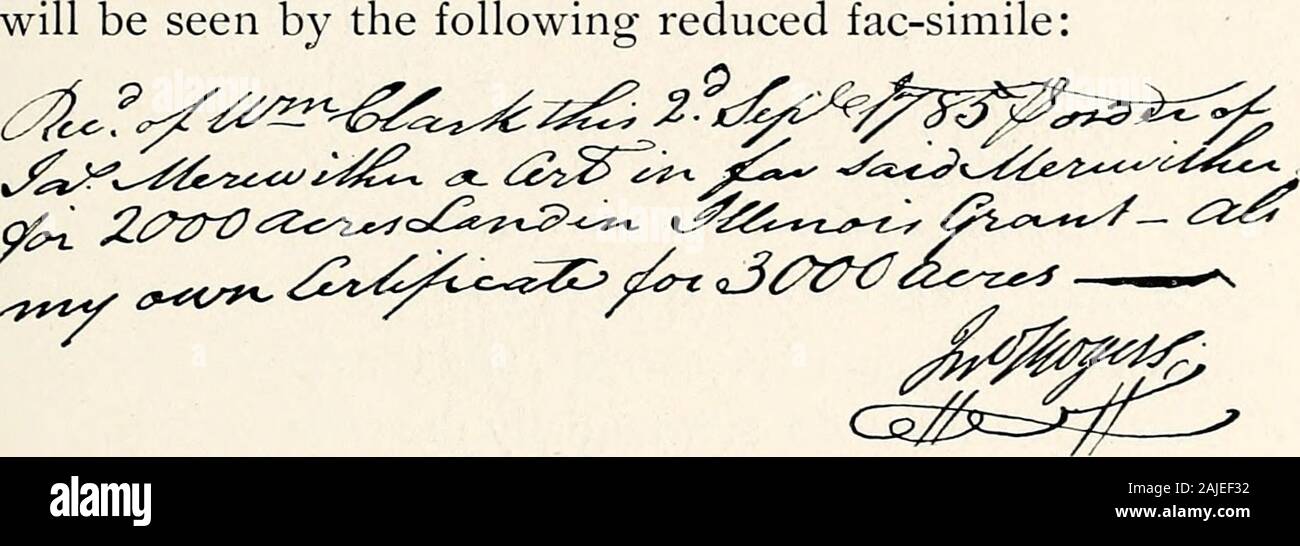 will be seen by the following reduced fac-simile:
Rec.d of Wm Clark this 2.d Sepr 1785 P order of
Jas Meriwither a Cert in fav said Meriwither
for 2000 acres Land in Illinois Grant – Als
my own Certificate for 3000 acres —
Jno Rogers
alamy
Image ID: 2AJEF32
www.alamy.com